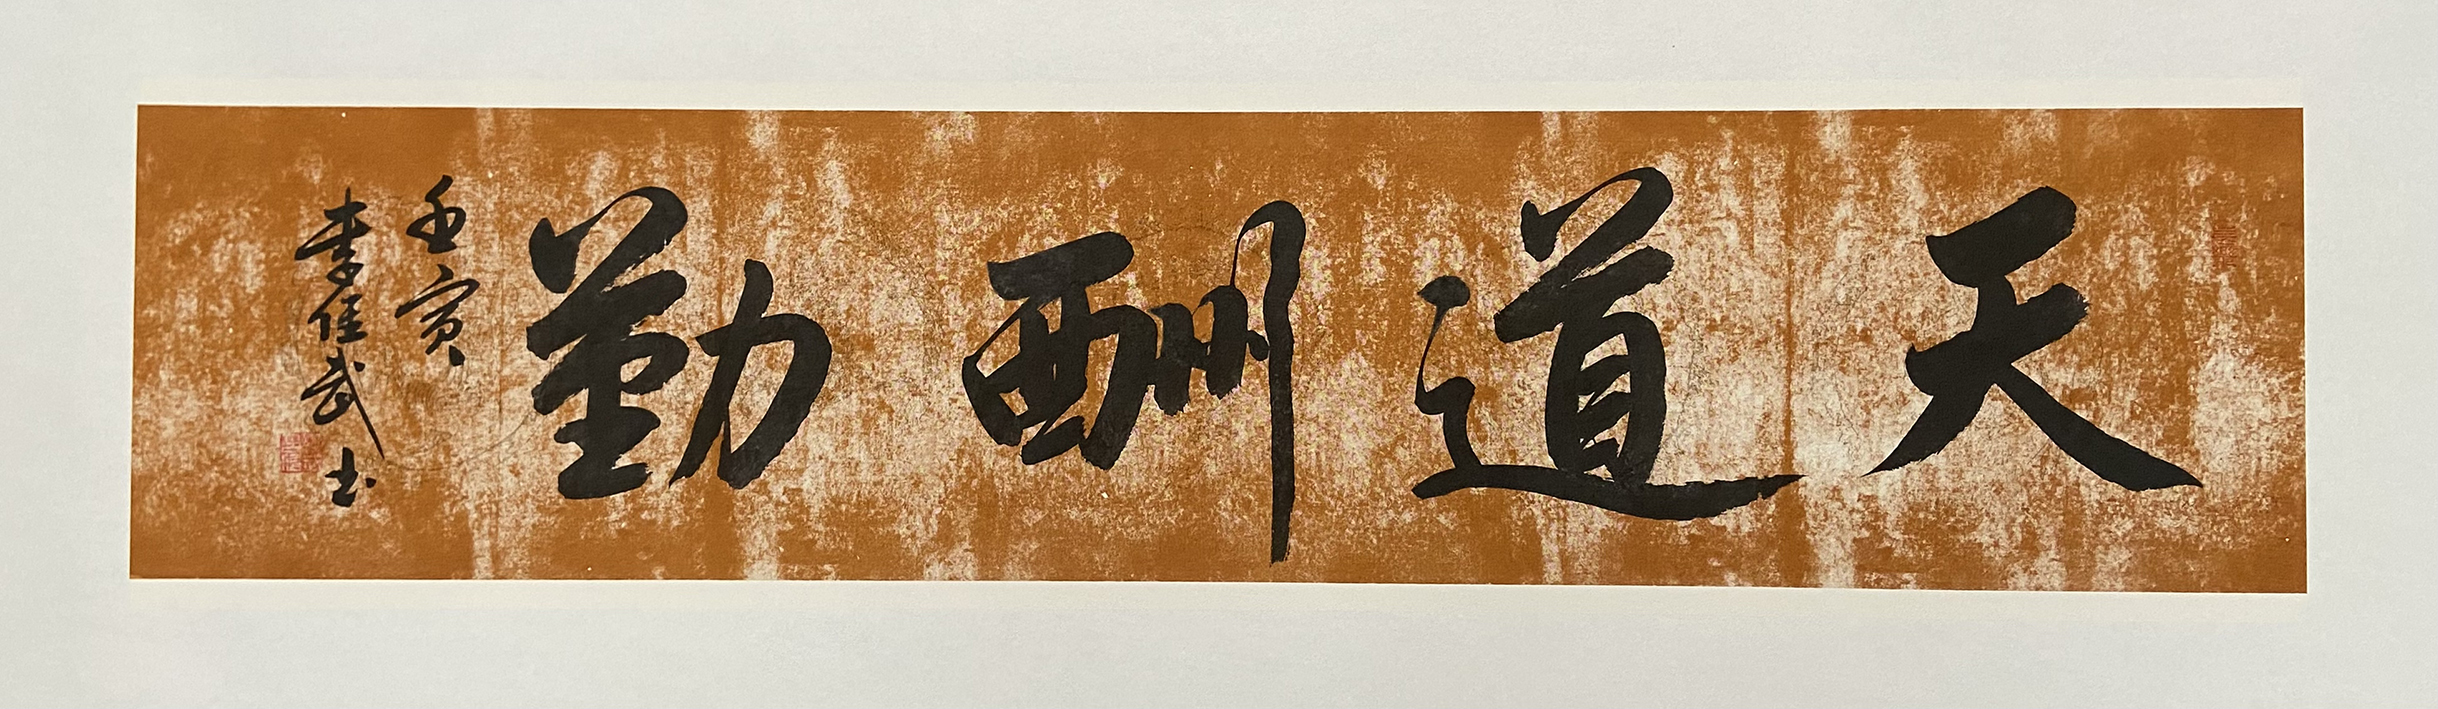 天道酬勤
壬寅
李佳武书